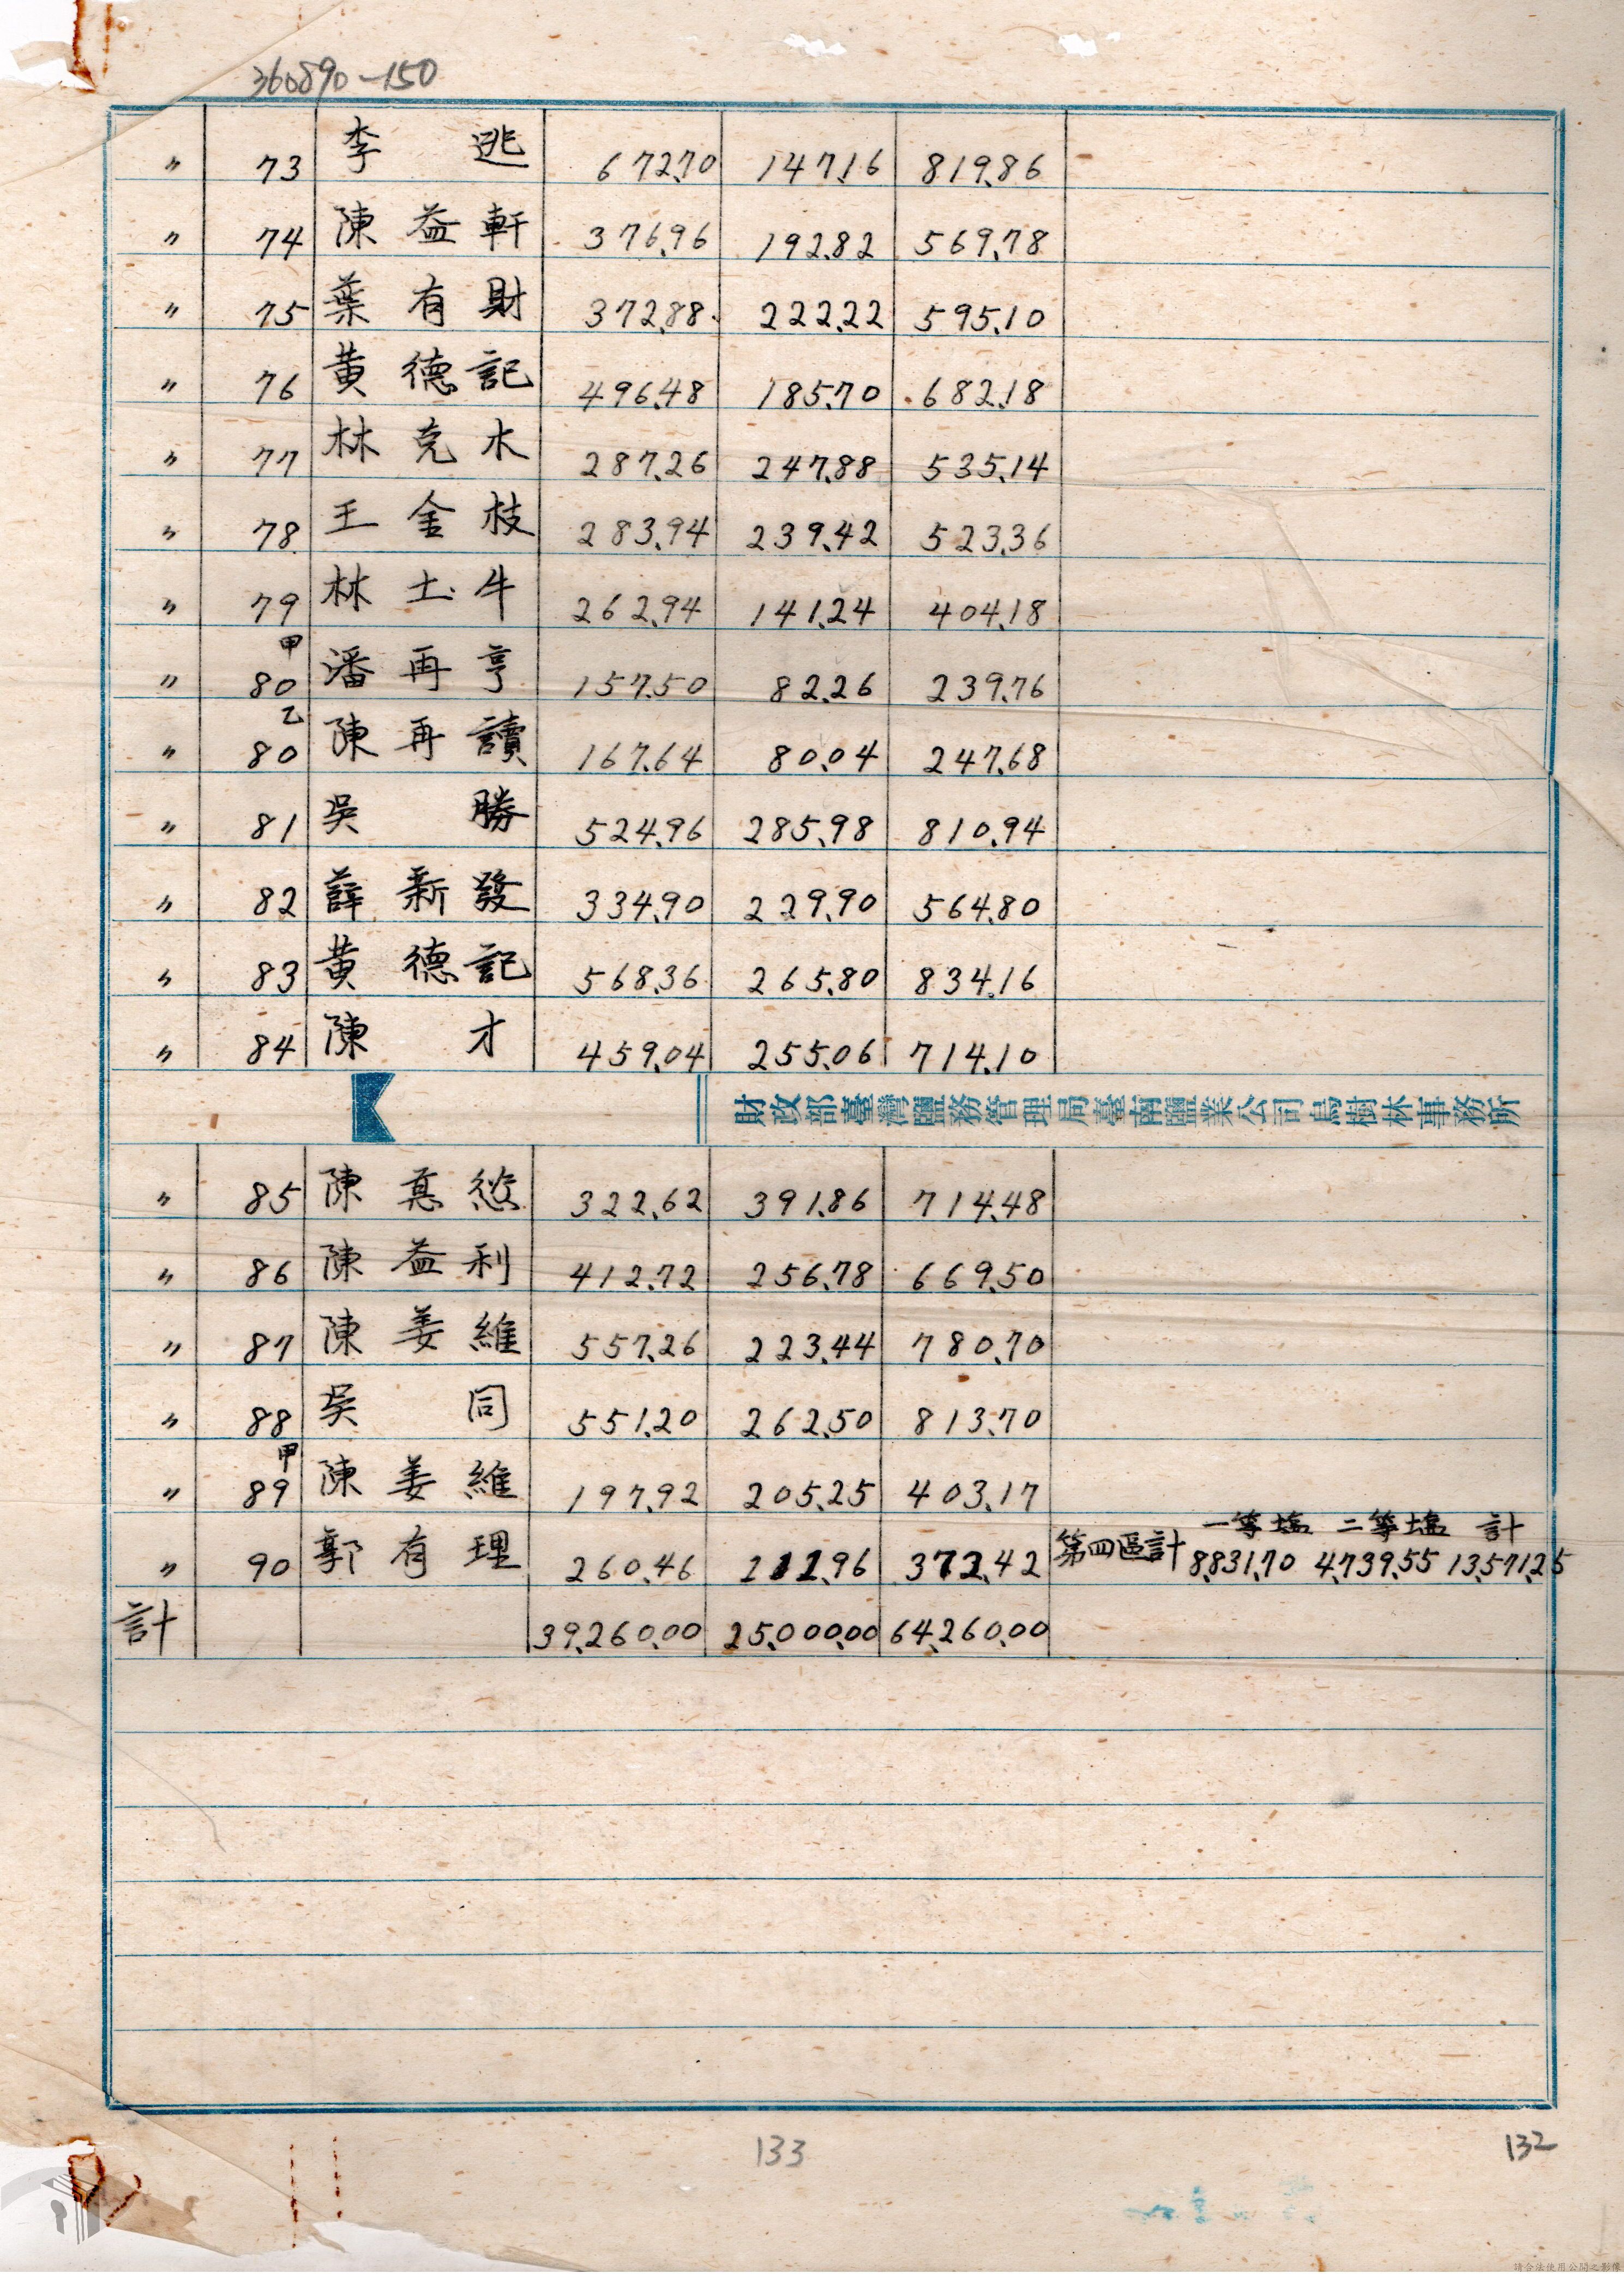 360890-150
〃 73 李 逃 672.70 147.16 819.86
〃 74 陳益軒 376.96 192.82 569.78
〃 75 葉有財 372.88 222.22 595.10
〃 76 黃德記 496.48 185.70 682.18
〃 77 林克木 287.26 247.88 535.14
〃 78 王金枝 283.94 239.42 523.36
〃 79 林土牛 262.94 141.24 404.18
〃 甲80 潘再亨 157.50 82.26 239.76
〃 乙80 陳再讀 167.64 80.04 247.68
〃 81 吳 勝 524.96 285.98 810.94
〃 82 薛新發 334.90 229.90 564.80
〃 83 黃德記 568.36 265.80 834.16
〃 84 陳 才 459.04 255.06 714.10
財政部臺灣鹽務管理局臺南鹽業公司烏樹林事務所
〃 85 陳 322.62 391.86 714.48
〃 86 陳益利 412.72 256.78 669.50
〃 87 陳姜維 557.26 223.44 780.70
〃 88 吳 同 551.20 262.50 813.70
〃 甲89 陳姜維 197.92 205.25 403.17
一等塩 二等塩 計
〃 90 郭有理 260.46 111.96 372.42 第四區計 8,831.70 4,739.55 13,571.25
計 39,260.00 25,000.00 64,260.00
133
132
請合法使用公開之影像